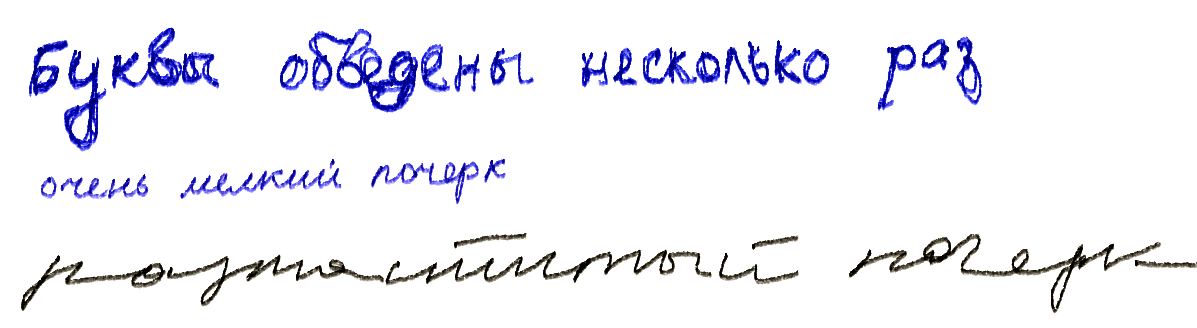 Буквы обведены несколько раз
очень мелкий почерк
размашистый почерк